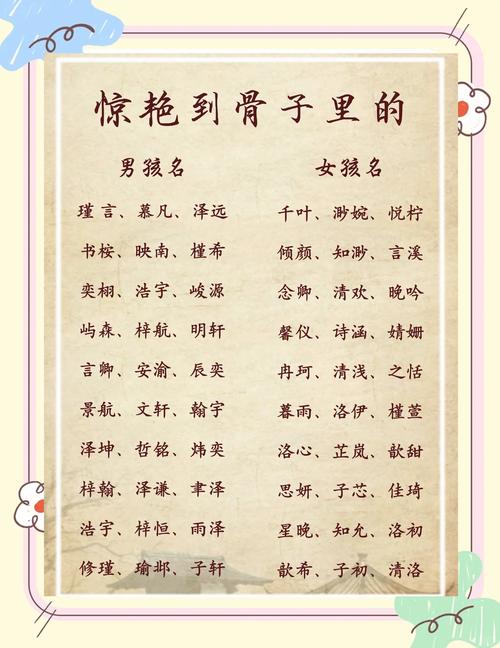 惊艳到骨子里的
男孩名 女孩名
瑾言、慕凡、泽远 千叶、渺婉、悦柠
书桉、映南、槿希 倾颜、知渺、言溪
奕栩、浩宇、峻源 念卿、清欢、晚吟
屿森、梓航、明轩 馨仪、诗涵、婧姗
言卿、安渝、辰奕 冉珂、清浅、之恬
景航、文轩、翰宇 暮雨、洛伊、槿萱
泽坤、哲铭、炜奕 洛心、芷岚、歆甜
梓翰、泽谦、聿泽 思妍、子芯、佳琦
浩宇、梓恒、雨泽 星晚、知允、洛初
修瑾、瑜邶、子轩 歆希、子初、清洛